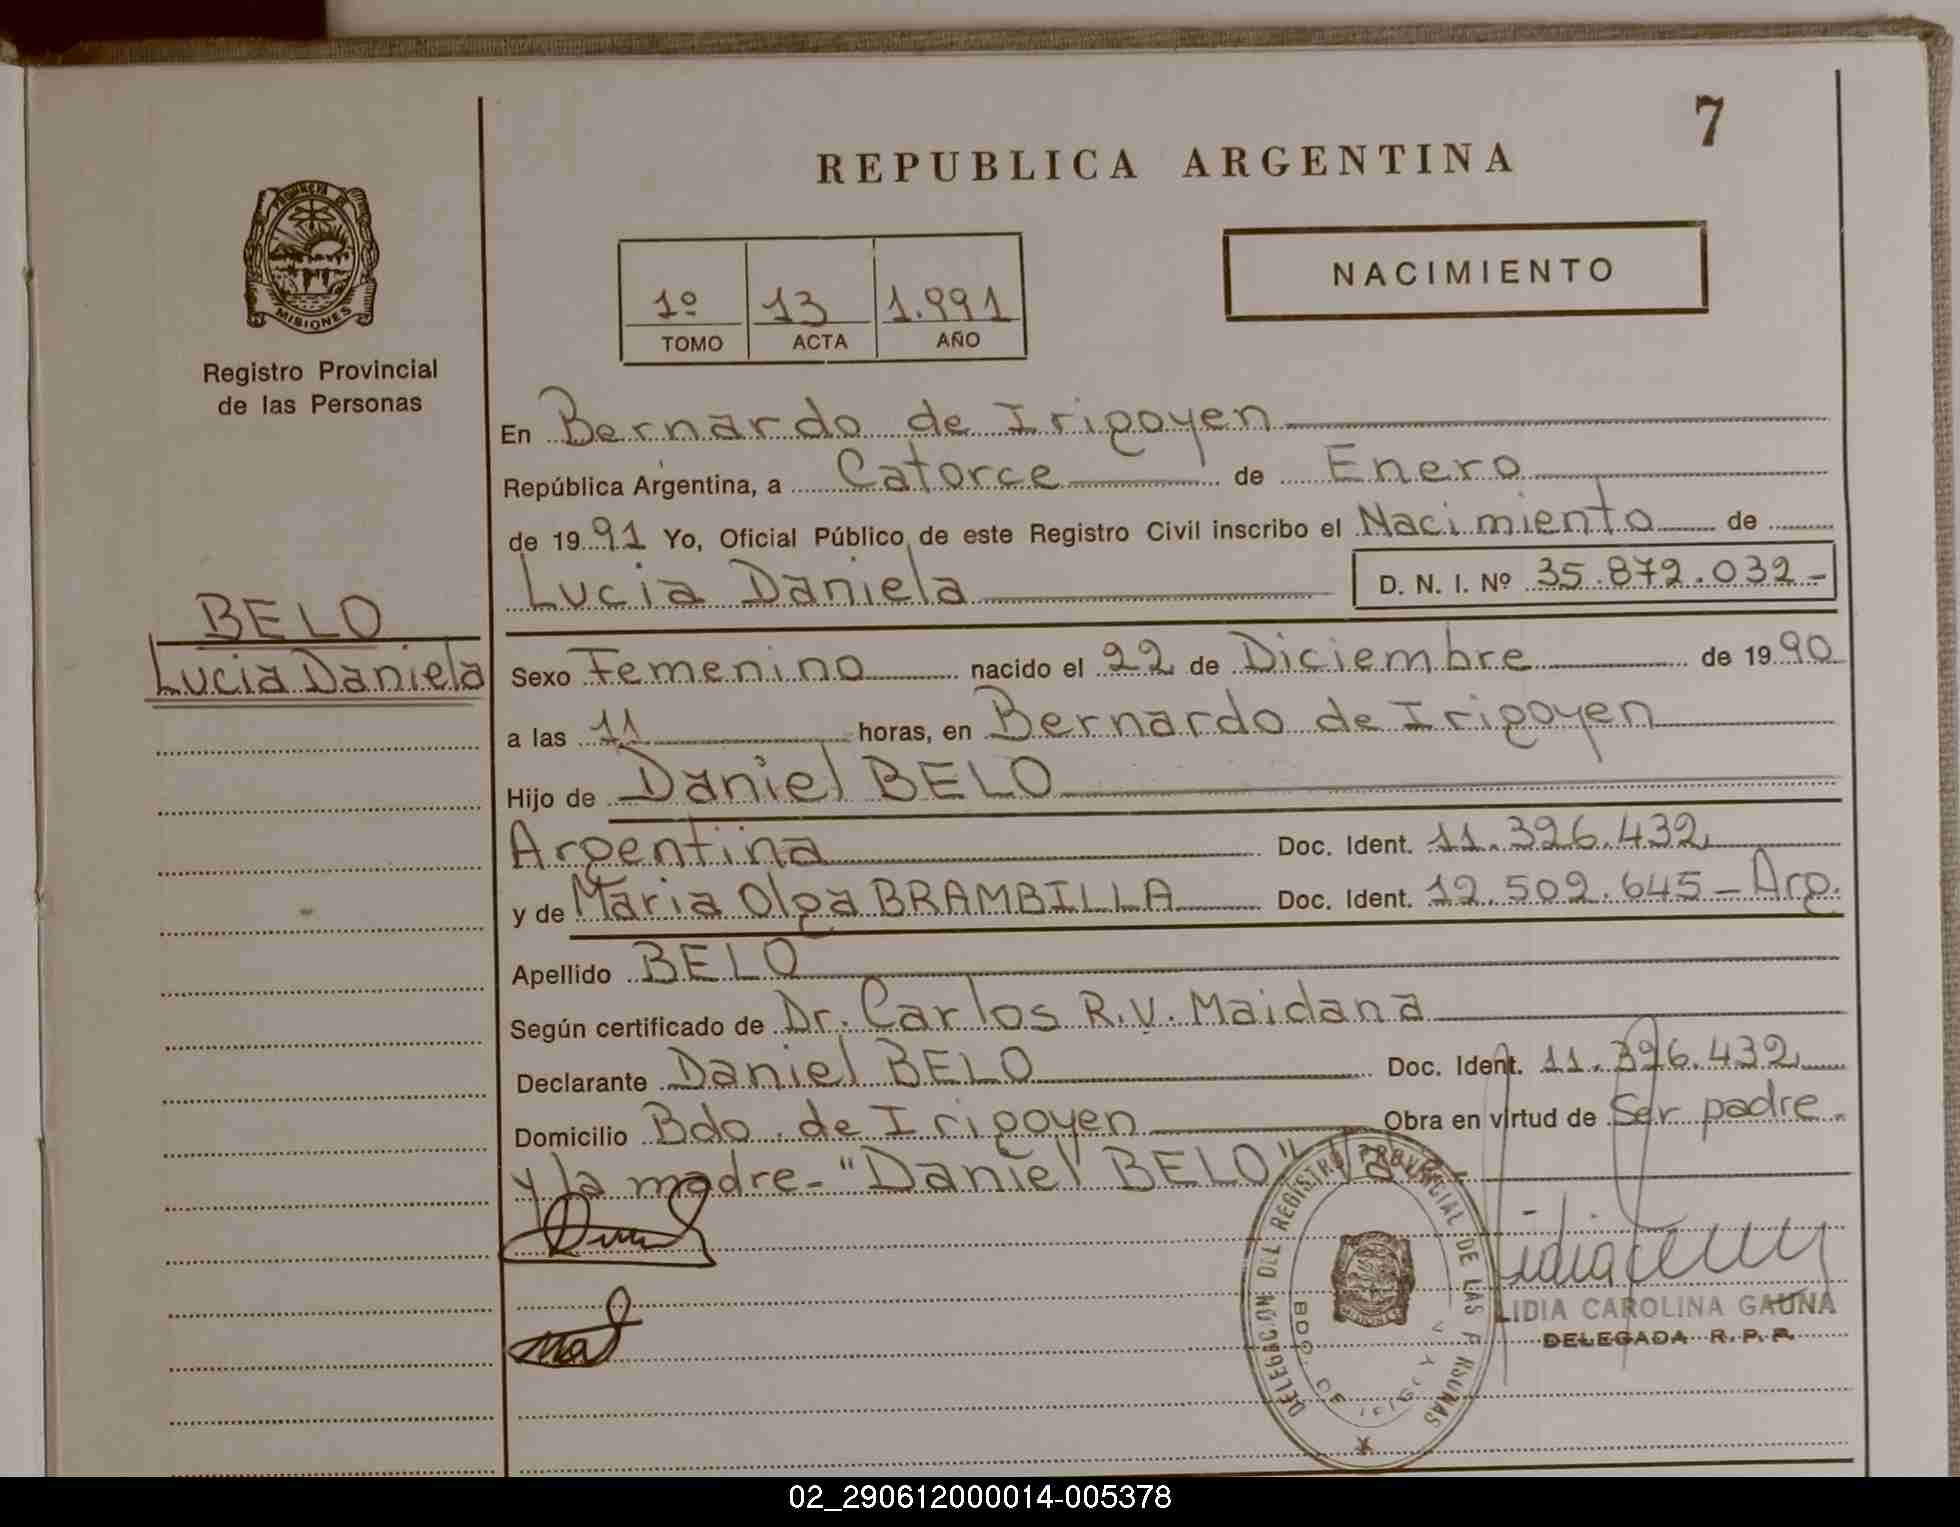 7
REPUBLICA ARGENTINA
PROVINCIA DE
MISIONES
Registro Provincial
de las Personas
1º 13 1.991
TOMO ACTA AÑO
NACIMIENTO
En Bernardo de Irigoyen
República Argentina, a Catorce de Enero
de 1991 Yo, Oficial Público de este Registro Civil inscribo el Nacimiento de
Lucia Daniela D. N. I. Nº 35.872.032-
BELO
Lucia Daniela
Sexo Femenino nacido el 22 de Diciembre de 1990
a las 11 horas, en Bernardo de Irigoyen
Hijo de Daniel BELO
Argentina Doc. Ident. 11.326.432
y de Maria Olga BRAMBILLA Doc. Ident. 12.502.645-Arg.
Apellido BELO
Según certificado de Dr. Carlos R.V. Maidana
Declarante Daniel BELO Doc. Ident. 11.326.432
Domicilio Bdo. de Irigoyen Obra en virtud de Ser padre.
y la madre-"Daniel BELO"
DELEGACION DEL REGISTRO PROVINCIAL DE LAS PERSONAS
BDO. DE
LIDIA CAROLINA GAUNA
DELEGADA R.P.P.
02_290612000014-005378